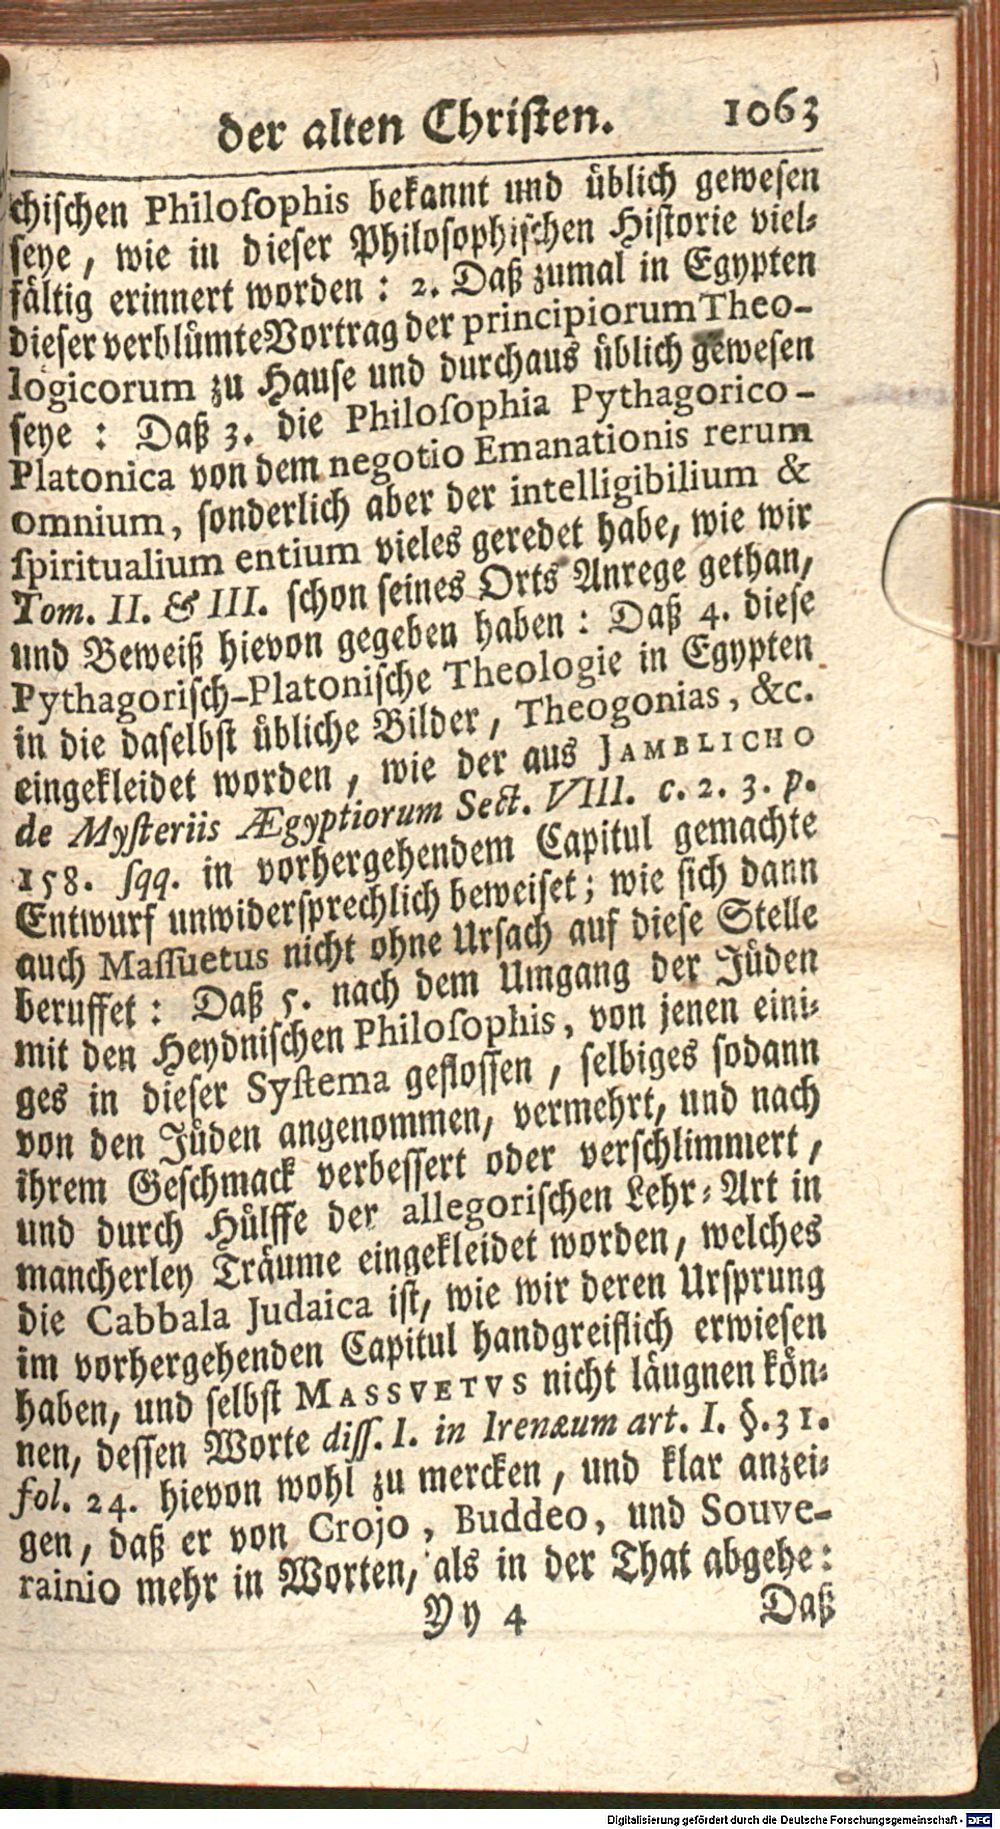 der alten Christen. 1063
chischen Philosophis bekannt und üblich gewesen
seye, wie in dieser Philosophischen Historie viel-
fältig erinnert worden: 2. Daß zumal in Egypten
dieser verblümte Vortrag der principiorum Theo-
logicorum zu Hause und durchaus üblich gewesen
seye: Daß 3. die Philosophia Pythagorico-
Platonica von dem negotio Emanationis rerum
omnium, sonderlich aber der intelligibilium &
spiritualium entium vieles geredet habe, wie wir
Tom. II. & III. schon seines Orts Anrege gethan,
und Beweiß hievon gegeben haben: Daß 4. diese
Pythagorisch-Platonische Theologie in Egypten
in die daselbst übliche Bilder, Theogonias, &c.
eingekleidet worden, wie der aus JAMBLICHO
de Mysteriis Ægyptiorum Sect. VIII. c. 2. 3. p.
158. sqq. in vorhergehendem Capitul gemachte
Entwurf unwidersprechlich beweiset; wie sich dann
auch Massuetus nicht ohne Ursach auf diese Stelle
beruffet: Daß 5. nach dem Umgang der Jüden
mit den Heydnischen Philosophis, von jenen eini-
ges in dieser Systema geflossen, selbiges sodann
von den Jüden angenommen, vermehrt, und nach
ihrem Geschmack verbessert oder verschlimmert,
und durch Hülffe der allegorischen Lehr-Art in
mancherley Träume eingekleidet worden, welches
die Cabbala Judaica ist, wie wir deren Ursprung
im vorhergehenden Capitul handgreiflich erwiesen
haben, und selbst MASSVETVS nicht läugnen kön-
nen, dessen Worte diss. I. in Irenæum art. I. §. 31.
fol. 24. hievon wohl zu mercken, und klar anzei-
gen, daß er von Crojo, Buddeo, und Souve-
rainio mehr in Worten, als in der That abgehe:
Yy 4 Daß
Digitalisierung gefördert durch die Deutsche Forschungsgemeinschaft - DFG